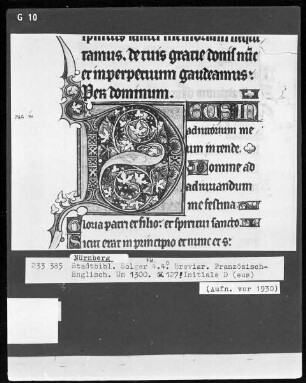 G 10
ramus. de tuis gracie donis
et in perpetuum gaudeamus:
Per dominum.
adiutorium me
um intende.
Domine ad
adiuuandum
me festina
loria patri et filio: et spiritui sancto.
Sicut erat in principio et nunc et s:
Nürnberg
233 385 Stadtbibl. Solger 4.4° Brevier. Französisch-
Englisch. Um 1300. 127: Initiale D (eus)
(Aufn. vor 1930)